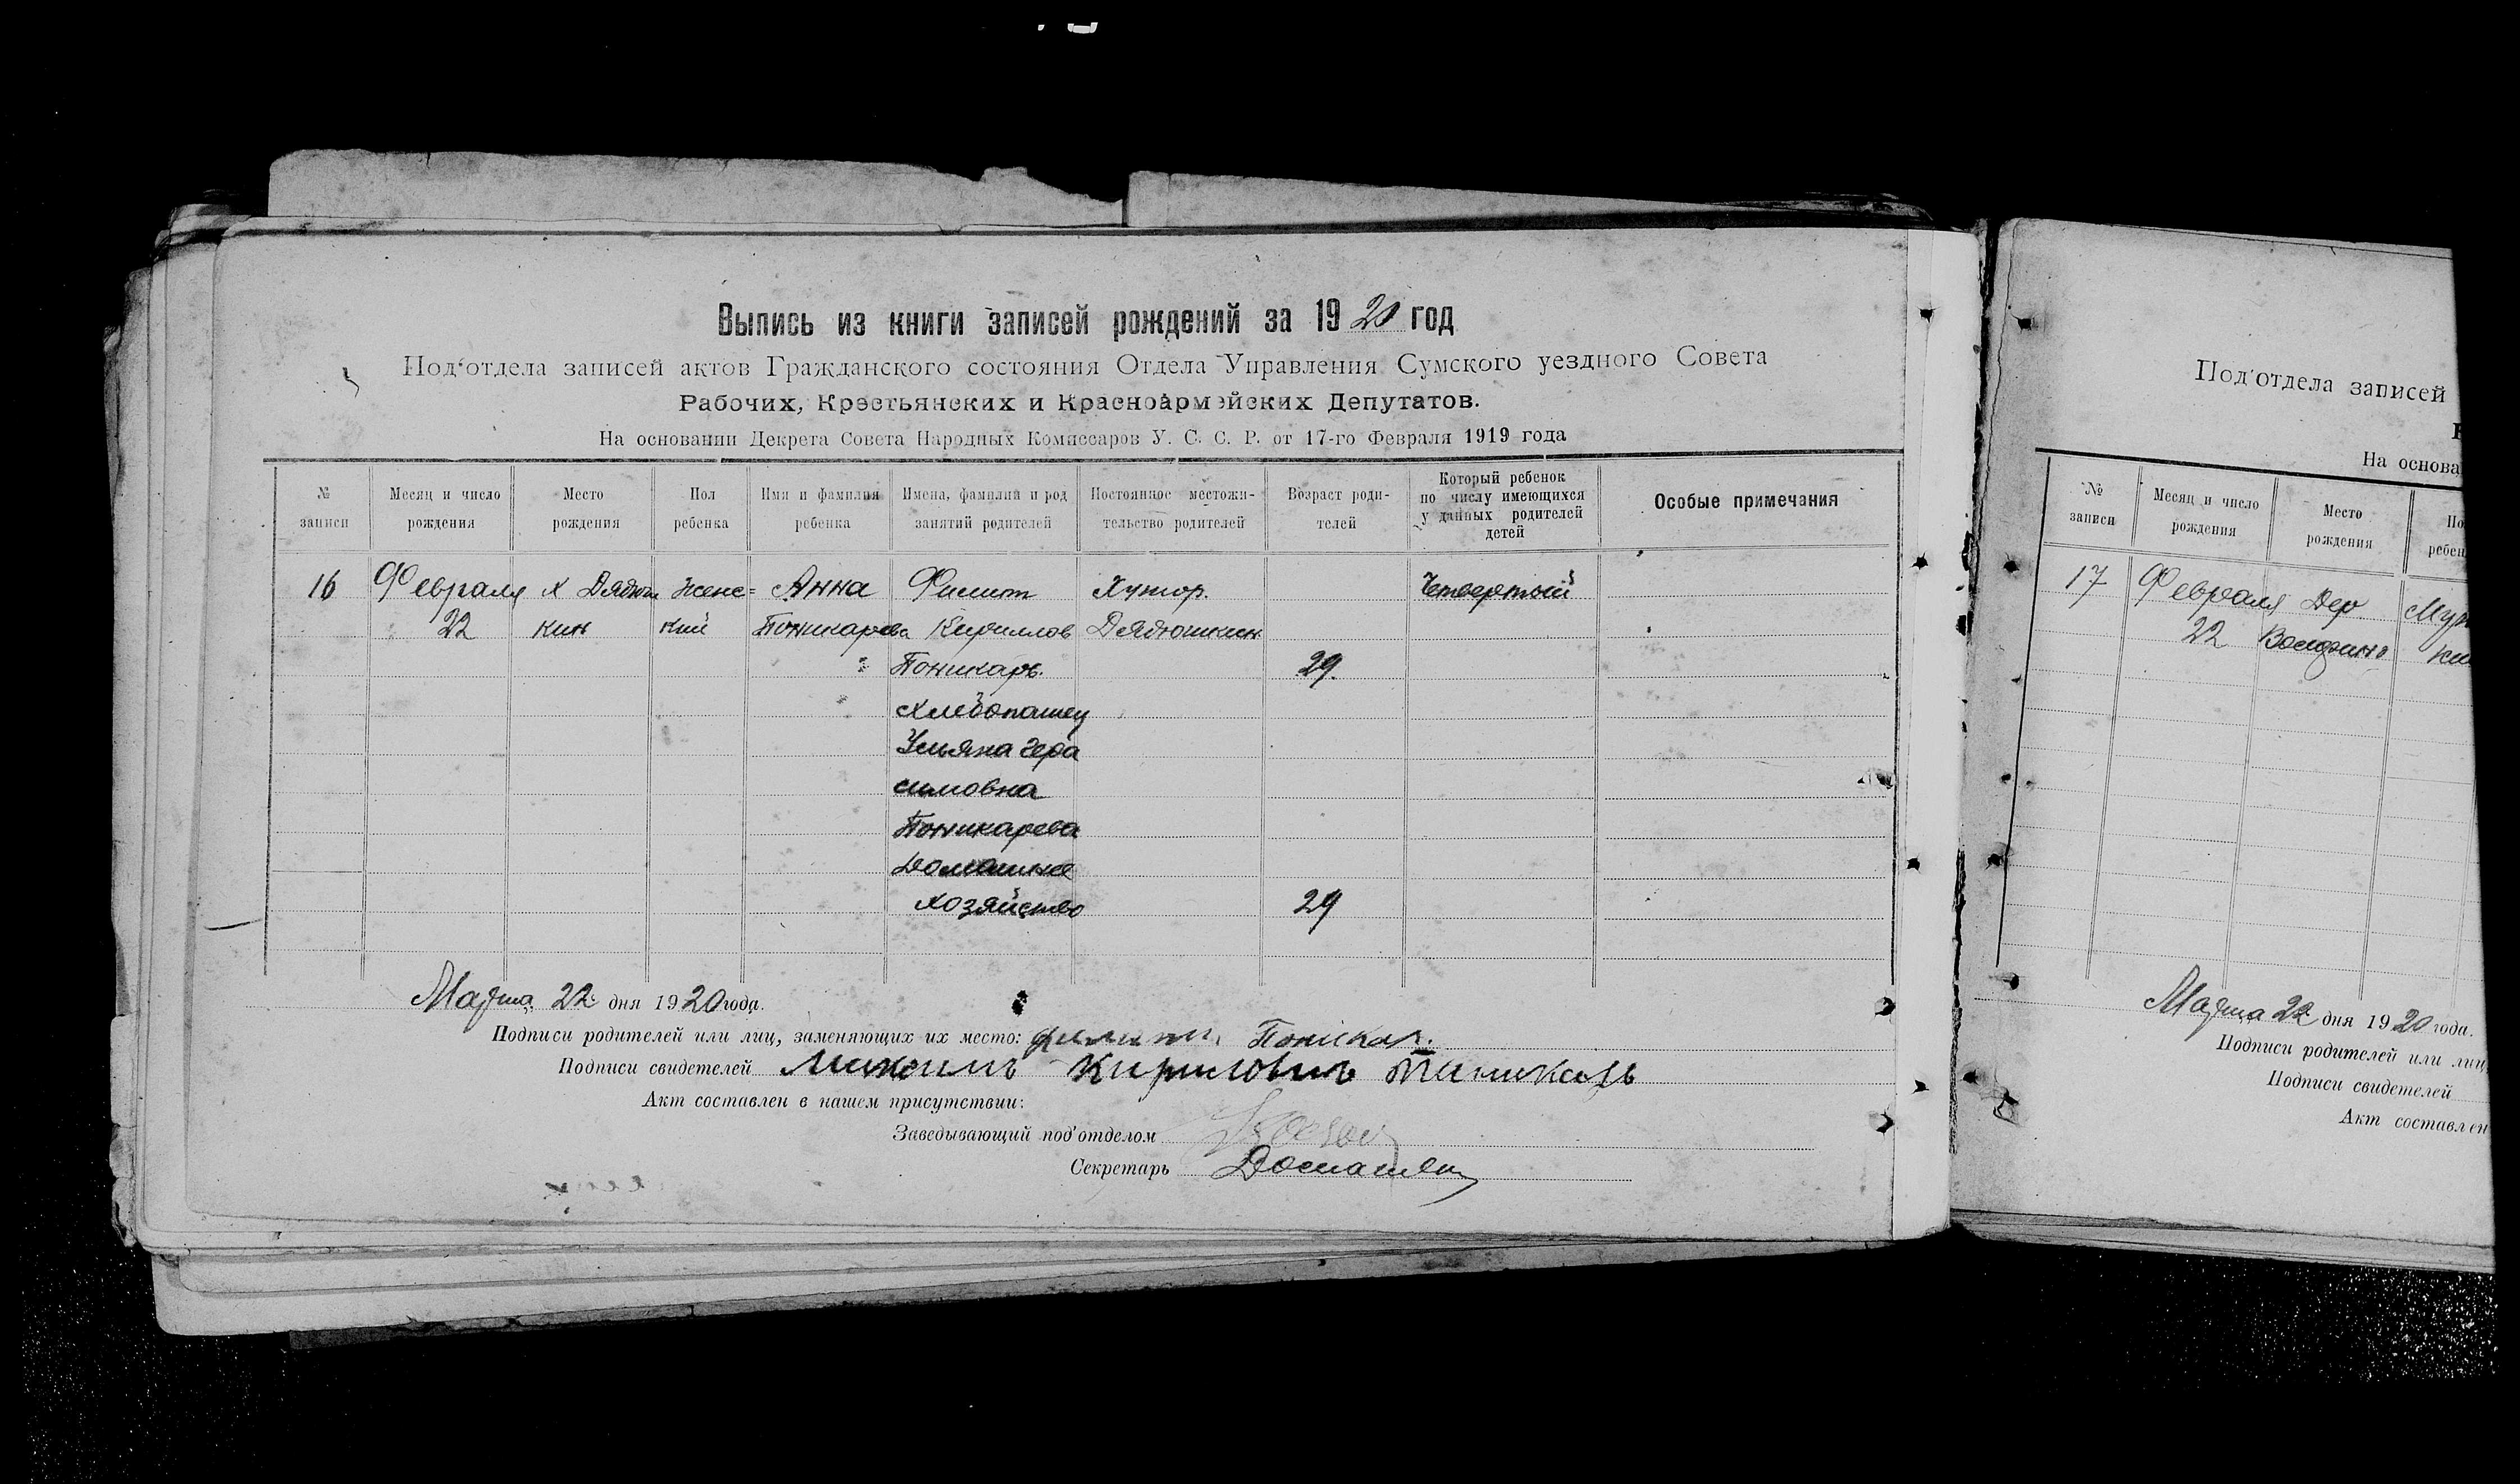 Выпись из книги записей рождений за 1920 год
Под'отдела записей актов Гражданского состояния Отдела Управления Сумского уездного Совета
Рабочих, Крестьянских и Красноармейских Депутатов.
На основании Декрета Совета Народных Комиссаров У. С. С. Р. от 17-го Февраля 1919 года
№ записи
Месяц и число рождения
Место рождения
Пол ребенка
Имя и фамилия ребенка
Имена, фамилии и род занятий родителей
Постоянное местожительство родителей
Возраст родителей
Который ребенок по числу имеющихся у данных родителей детей
Особые примечания
16 Февраля Х Дядюш Женс= Анна Филип Хутор. Четвертый
22 кин кий Поникарева Кириллов Дядюшкин
Поникарь. 29.
Хлебопашец
Ульяна Гера
симовна
Поникарева
Домашнее
Хозяйство 29
Марта 22 дня 1920 года.
Подписи родителей или лиц, заменяющих их место: Поникар.
Подписи свидетелей Кирилович
Акт составлен в нашем присутствии:
Заведывающий под'отделом
Секретарь
Под'отдела записей
На основа
№ записи
Месяц и число рождения
Место рождения
По
ребен
17 Февраля Дер. Муж
22
Марта 22 дня 1920 года.
Подписи родителей или лиц,
Подписи свидетелей
Акт составлен